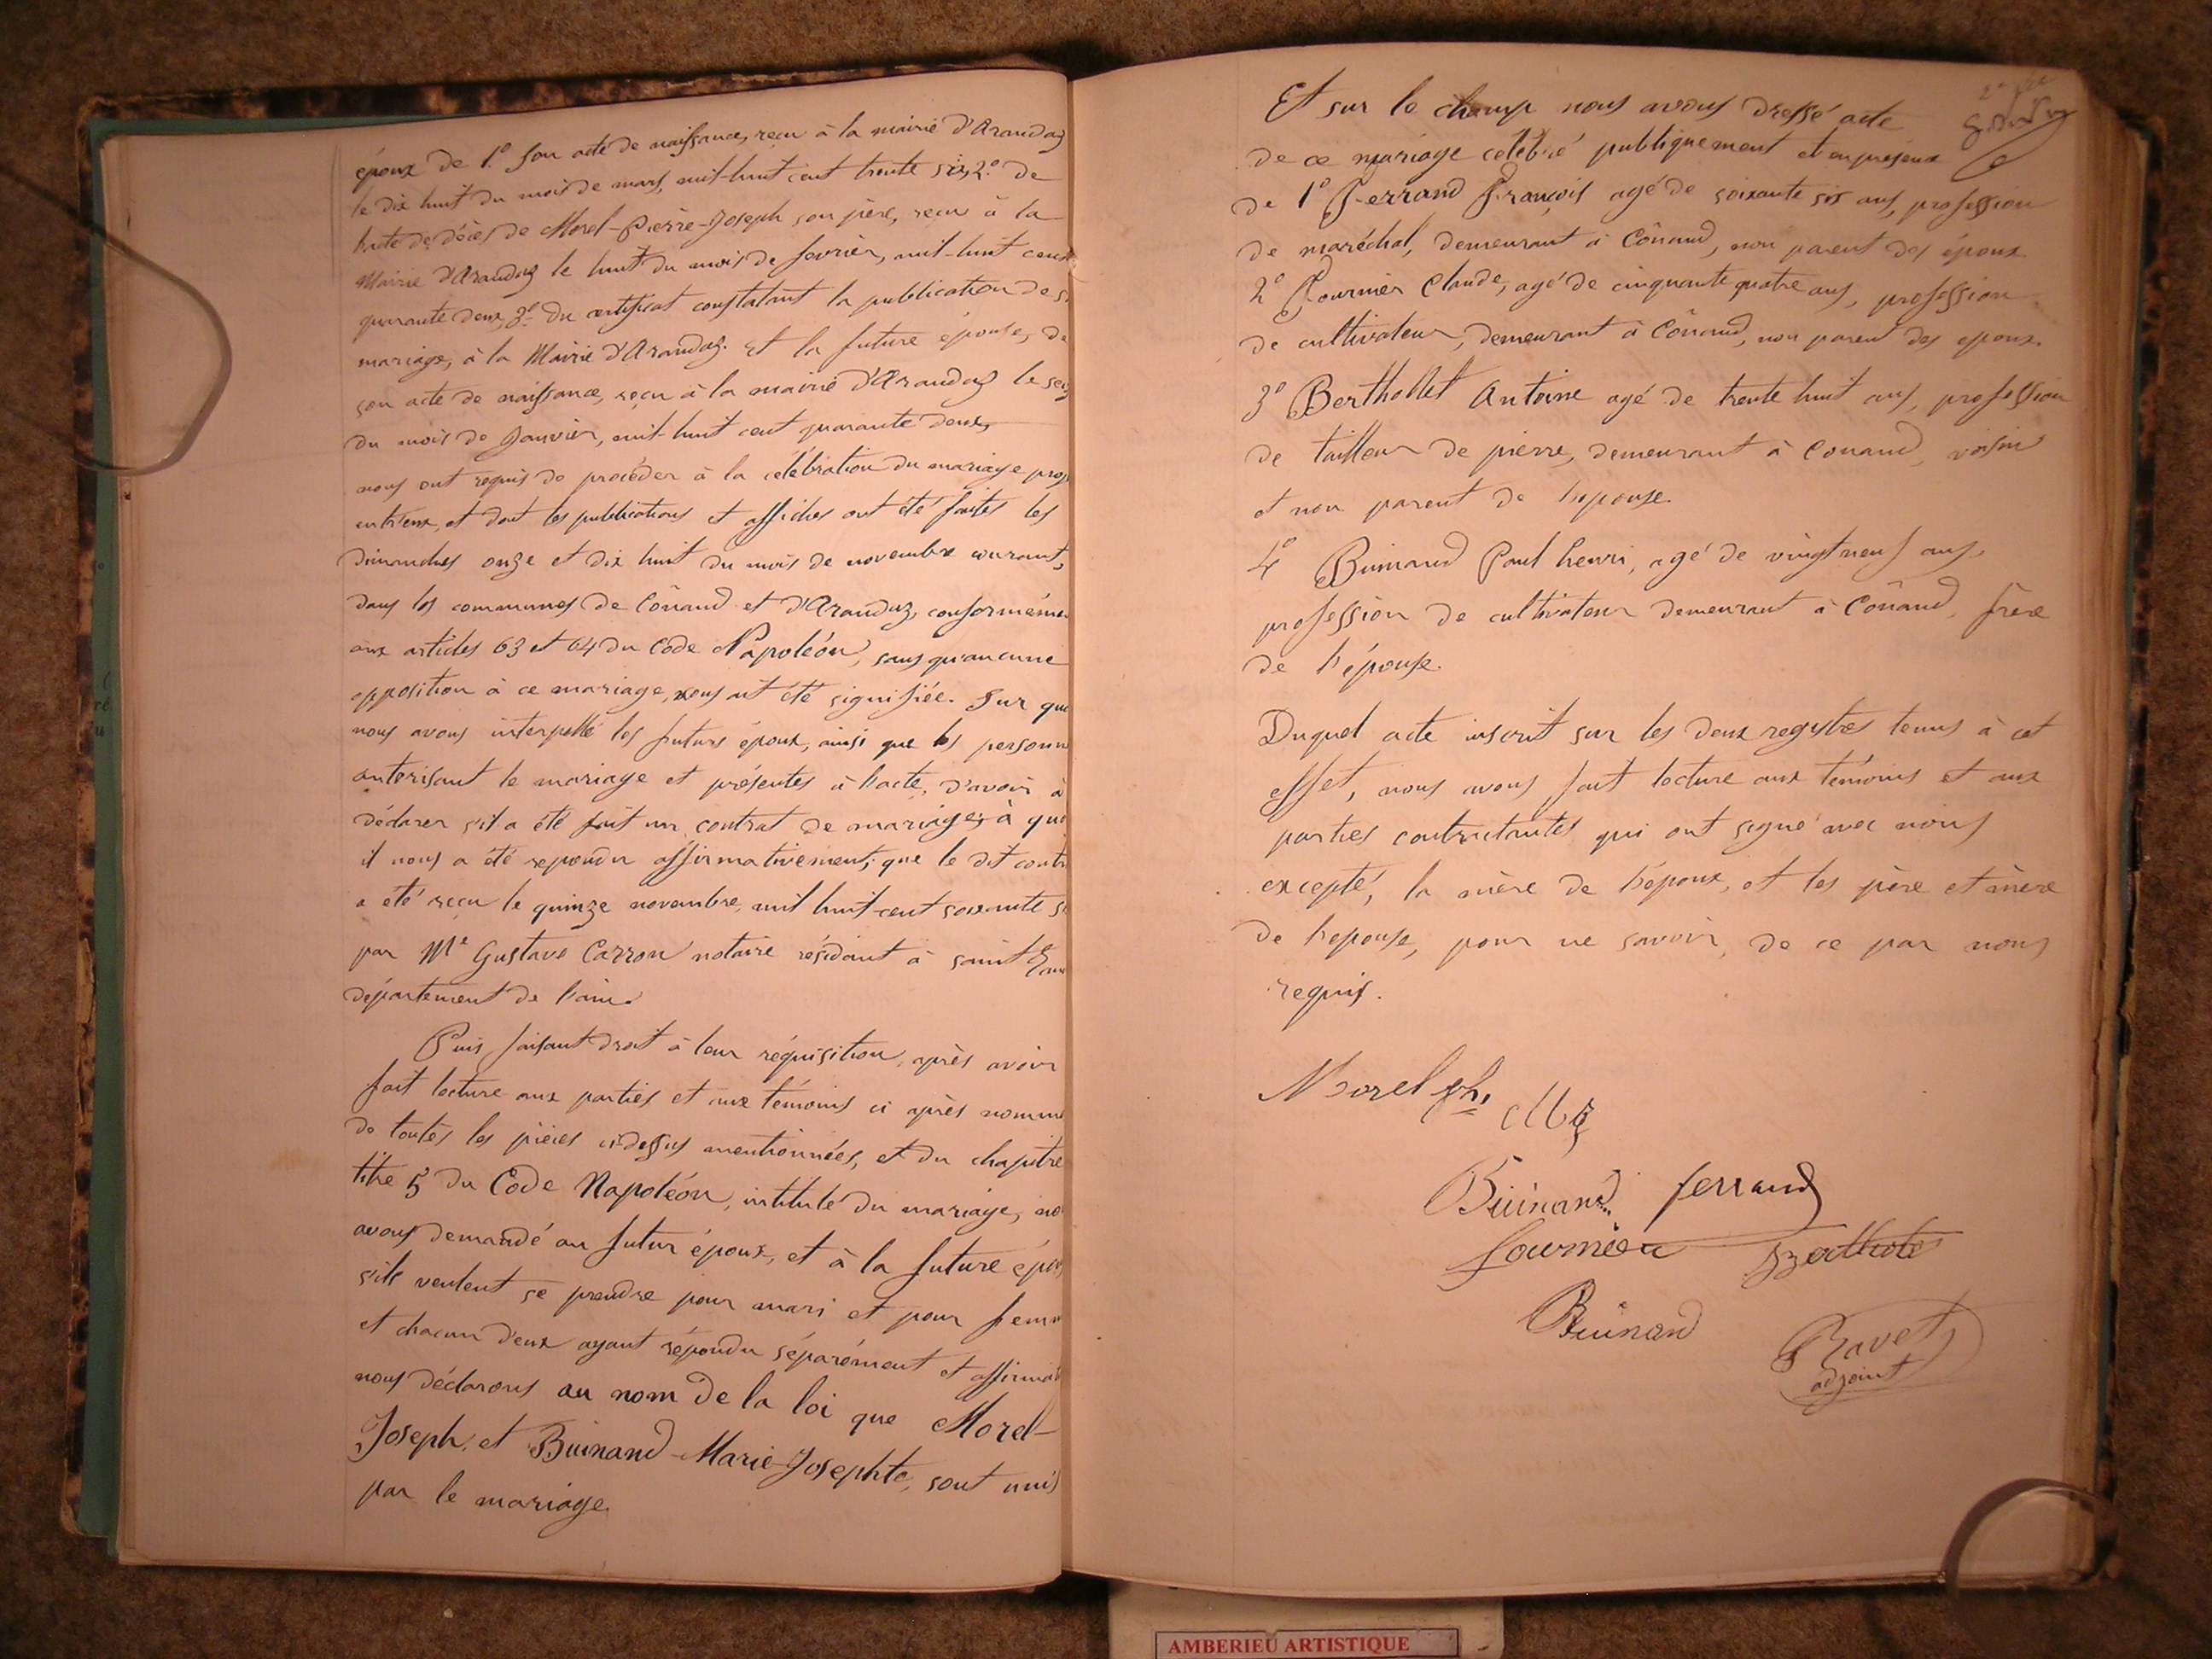 époux de 1.° son acte de naissance, reçu à la mairie d'Arandaz
le dix huit du mois de mars, mil-huit cent trente six, 2.° de
de décès de Morel-Pierre-Joseph son père, reçu à la
Mairie d'Arandaz le huit du mois de fevrier, mil-huit cent
quarante deux, 3.° du certificat constatant la publication de
mariage, à la Mairie d'Arandaz. Et la future épouse, de
son acte de naissance, reçu à la mairie d'Arandaz le
du mois de Janvier, mil-huit cent quarante deux,
nous ont requis de procéder à la célébration du mariage
entr'eux, et dont les publications et affiches ont été faites les
dimanches onze et dix huit du mois de novembre courant,
dans les communes de Cônand et d'Arandaz, conforméme
aux articles 63 et 64 du Code Napoléon, sans qu'aucune
opposition à ce mariage, nous ait été signifiée. Sur quoi
nous avons interpellé les futurs époux, ainsi que les personn
autorisant le mariage et présentes à l'acte, d'avoir à
déclarer s'il a été fait un contrat de mariage; à quoi
il nous a été repondu affirmativement; que le dit contr
a été reçu le quinze novembre, mil huit-cent soixante
par Me Gustave Carron notaire résidant à saint
département de l'ain.
Puis, faisant droit à leur réquisition, après avoir
fait lecture aux parties et aux témoins ci après nommé
de toutes les pièces ci-dessus mentionnées, et du chapitre
titre 5 du Code Napoléon, intitulé du mariage, no
avons demandé au futur époux, et à la future épou
s'ils veulent se prendre pour mari et pour fem
et chacun d'eux ayant répondu séparément et affirmat
nous déclarons au nom de la loi que Morel-
Joseph, et Buinand-Marie-Josephte, sont unis
par le mariage.
Et sur le champ nous avons dressé acte
de ce mariage célébré publiquement et en présence
de 1° Ferrand François agé de soixante six ans, profession
de maréchal, demeurant à Cônand, non parent des époux
2° Fournier Claude, agé de cinquante quatre ans, profession
de cultivateur, demeurant à Cônand, non parent des epoux.
3° Berthollet Antoine agé de trente huit ans, profession
de tailleur de pierre, demeurant à Conand, voisin
et non parent de l'epouse.
4° Buinand Paul henri, agé de vingt neuf ans,
profession de cultivateur demeurant à Cônand, frère
de l'épouse.
Duquel acte inscrit sur les deux registres tenus à cet
effet, nous avons fait lecture aux témoins et aux
parties contractantes qui ont signé avec nous
excepté, la mère de l'époux, et les père et mère
de l'epouse, pour ne savoir, de ce par nous
requis.
Morel jph.
Buinand ferrand
fournier Bertholet
Buinand
Ravet
adjoint
AMBERIEU ARTISTIQUE